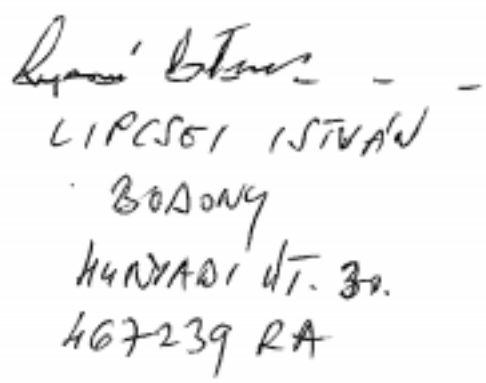 LIPCSEI ISTVÁN
BODONY
HUNYADI ÚT. 30.
467239 RA